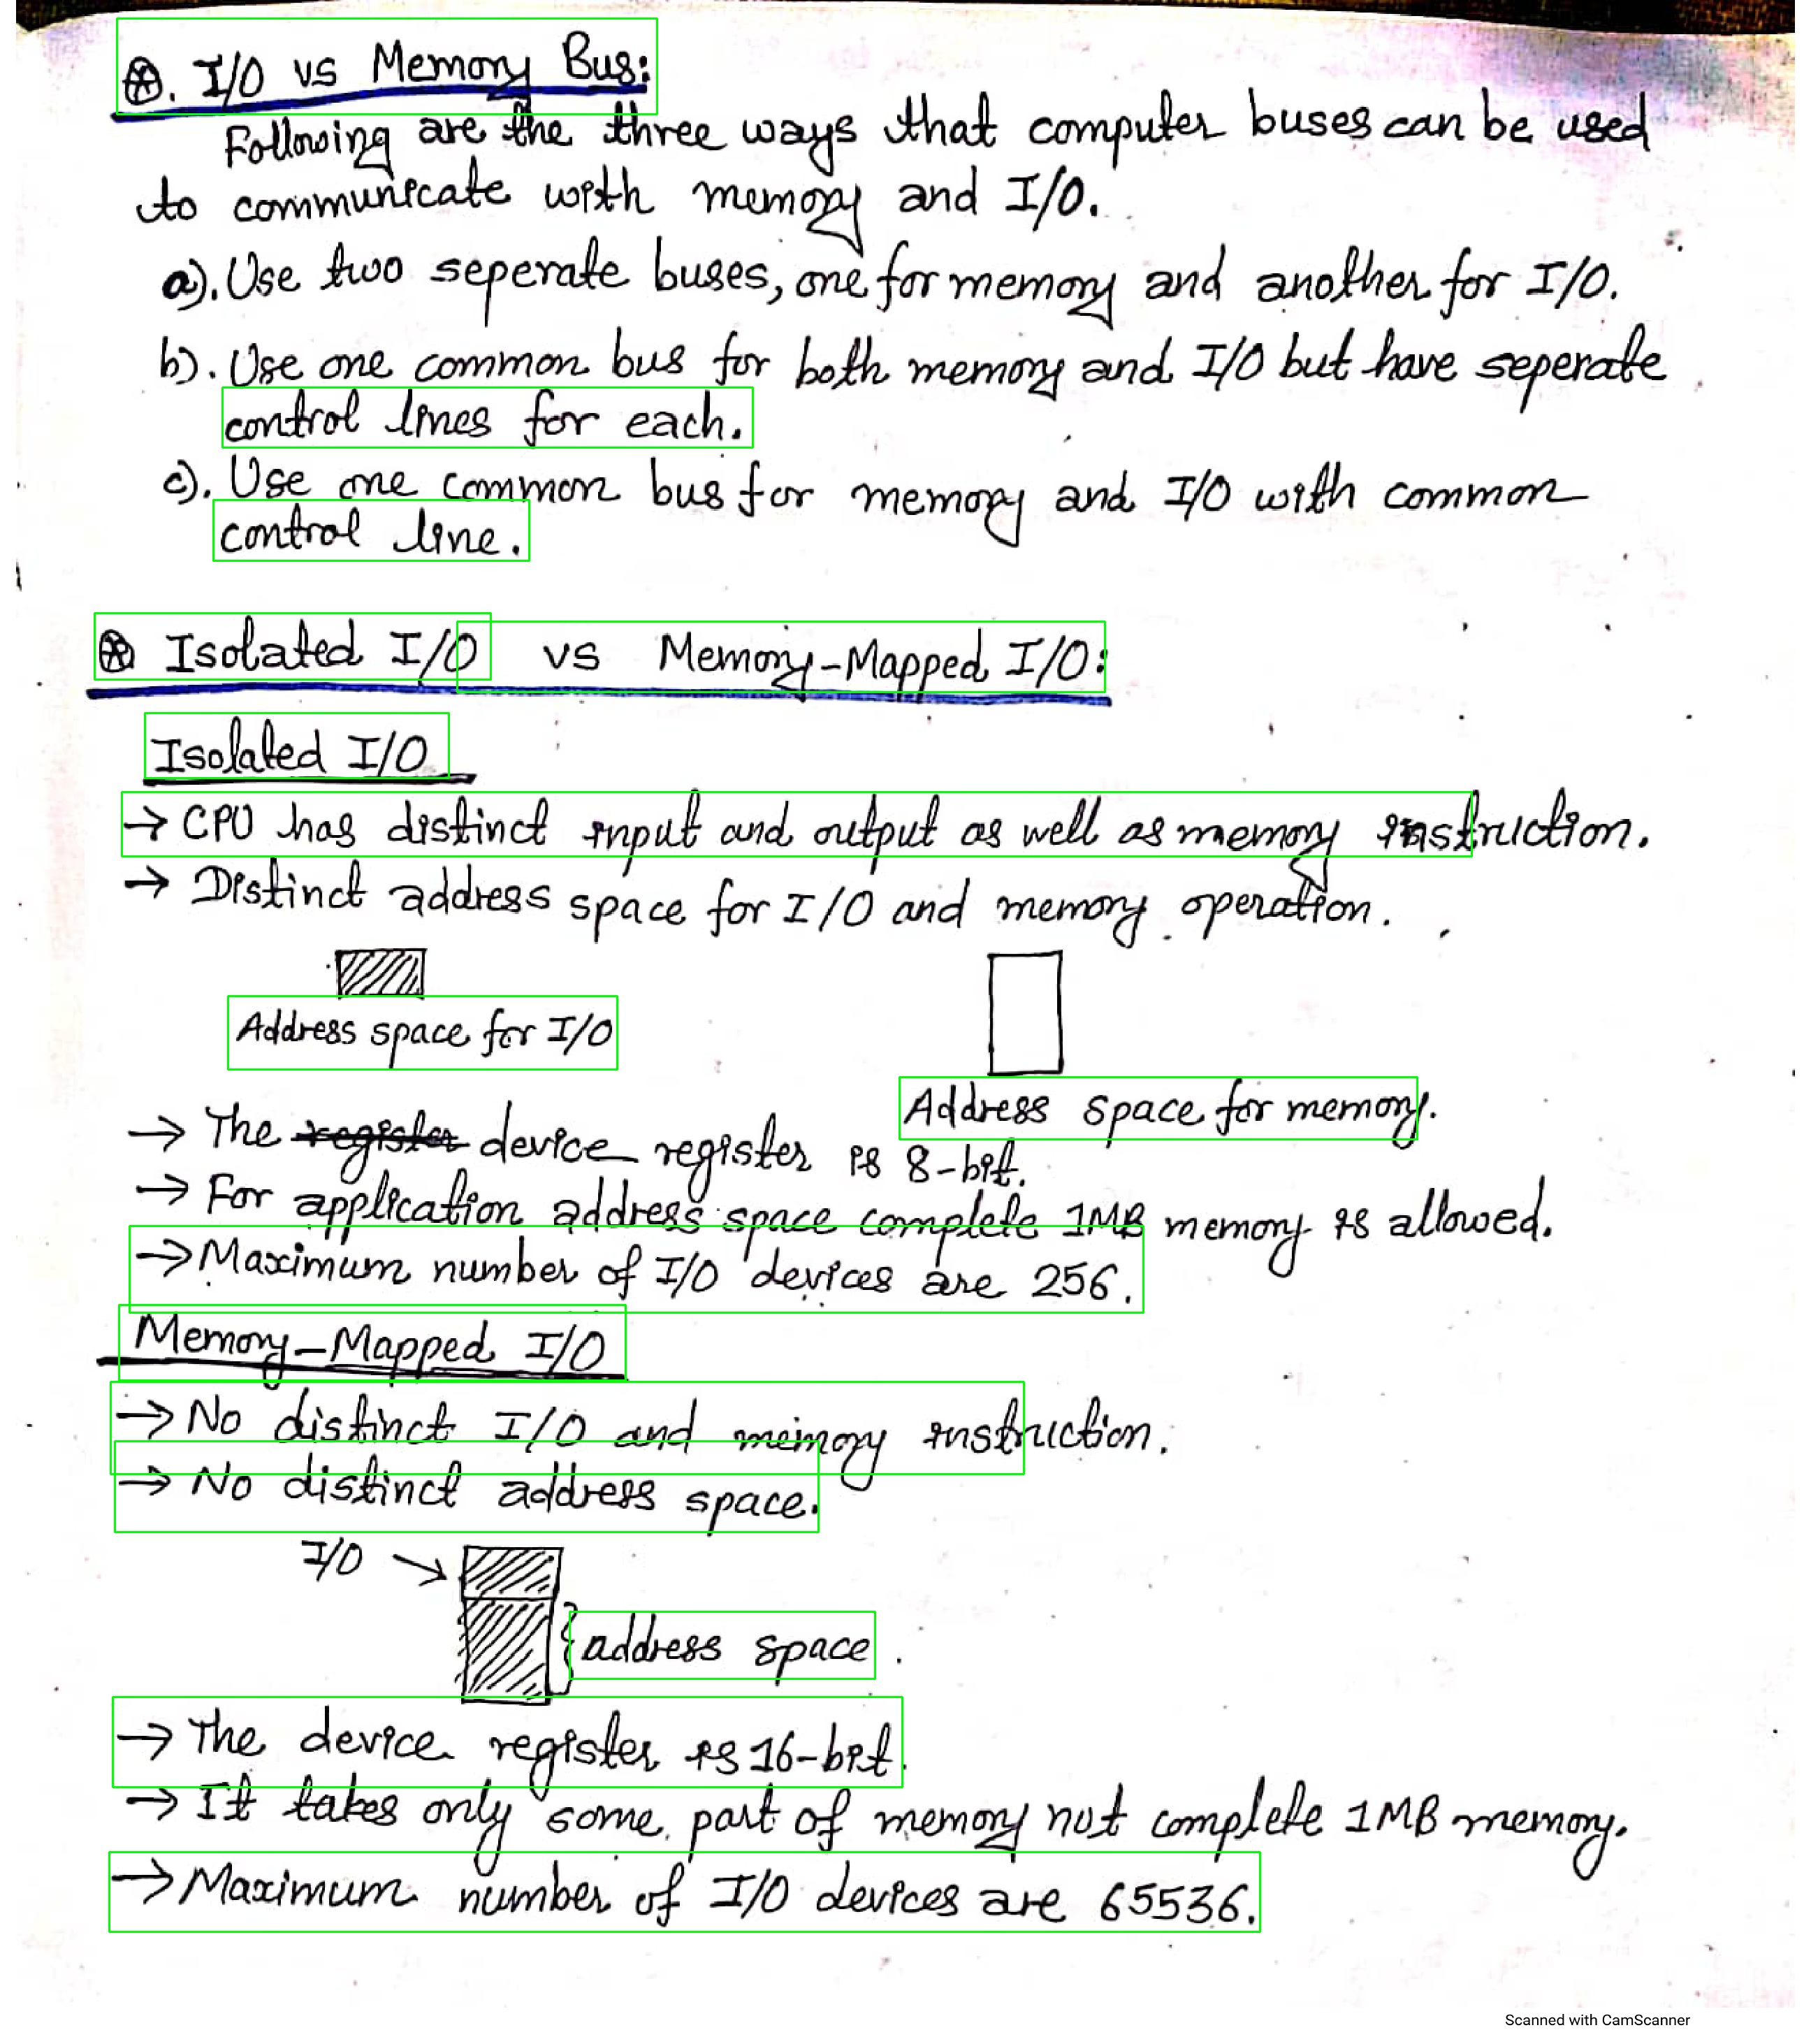 ⊛. I/O vs Memory Bus:
Following are the three ways that computer buses can be used
to communicate with memory and I/O.
a). Use two seperate buses, one for memory and another for I/O.
b). Use one common bus for both memory and I/O but have seperate
control lines for each.
c). Use one common bus for memory and I/O with common
control line.
⊛ Isolated I/O vs Memory-Mapped I/O:
Isolated I/O
→ CPU has distinct input and output as well as memory instruction.
→ Distinct address space for I/O and memory operation.
Address space for I/O
Address space for memory.
→ The register device register is 8-bit.
→ For application address space complete 1MB memory is allowed.
→ Maximum number of I/O devices are 256.
Memory-Mapped I/O
→ No distinct I/O and memory instruction.
→ No distinct address space.
I/O →
address space.
→ The device register is 16-bit.
→ It takes only some part of memory not complete 1MB memory.
→ Maximum number of I/O devices are 65536.
Scanned with CamScanner